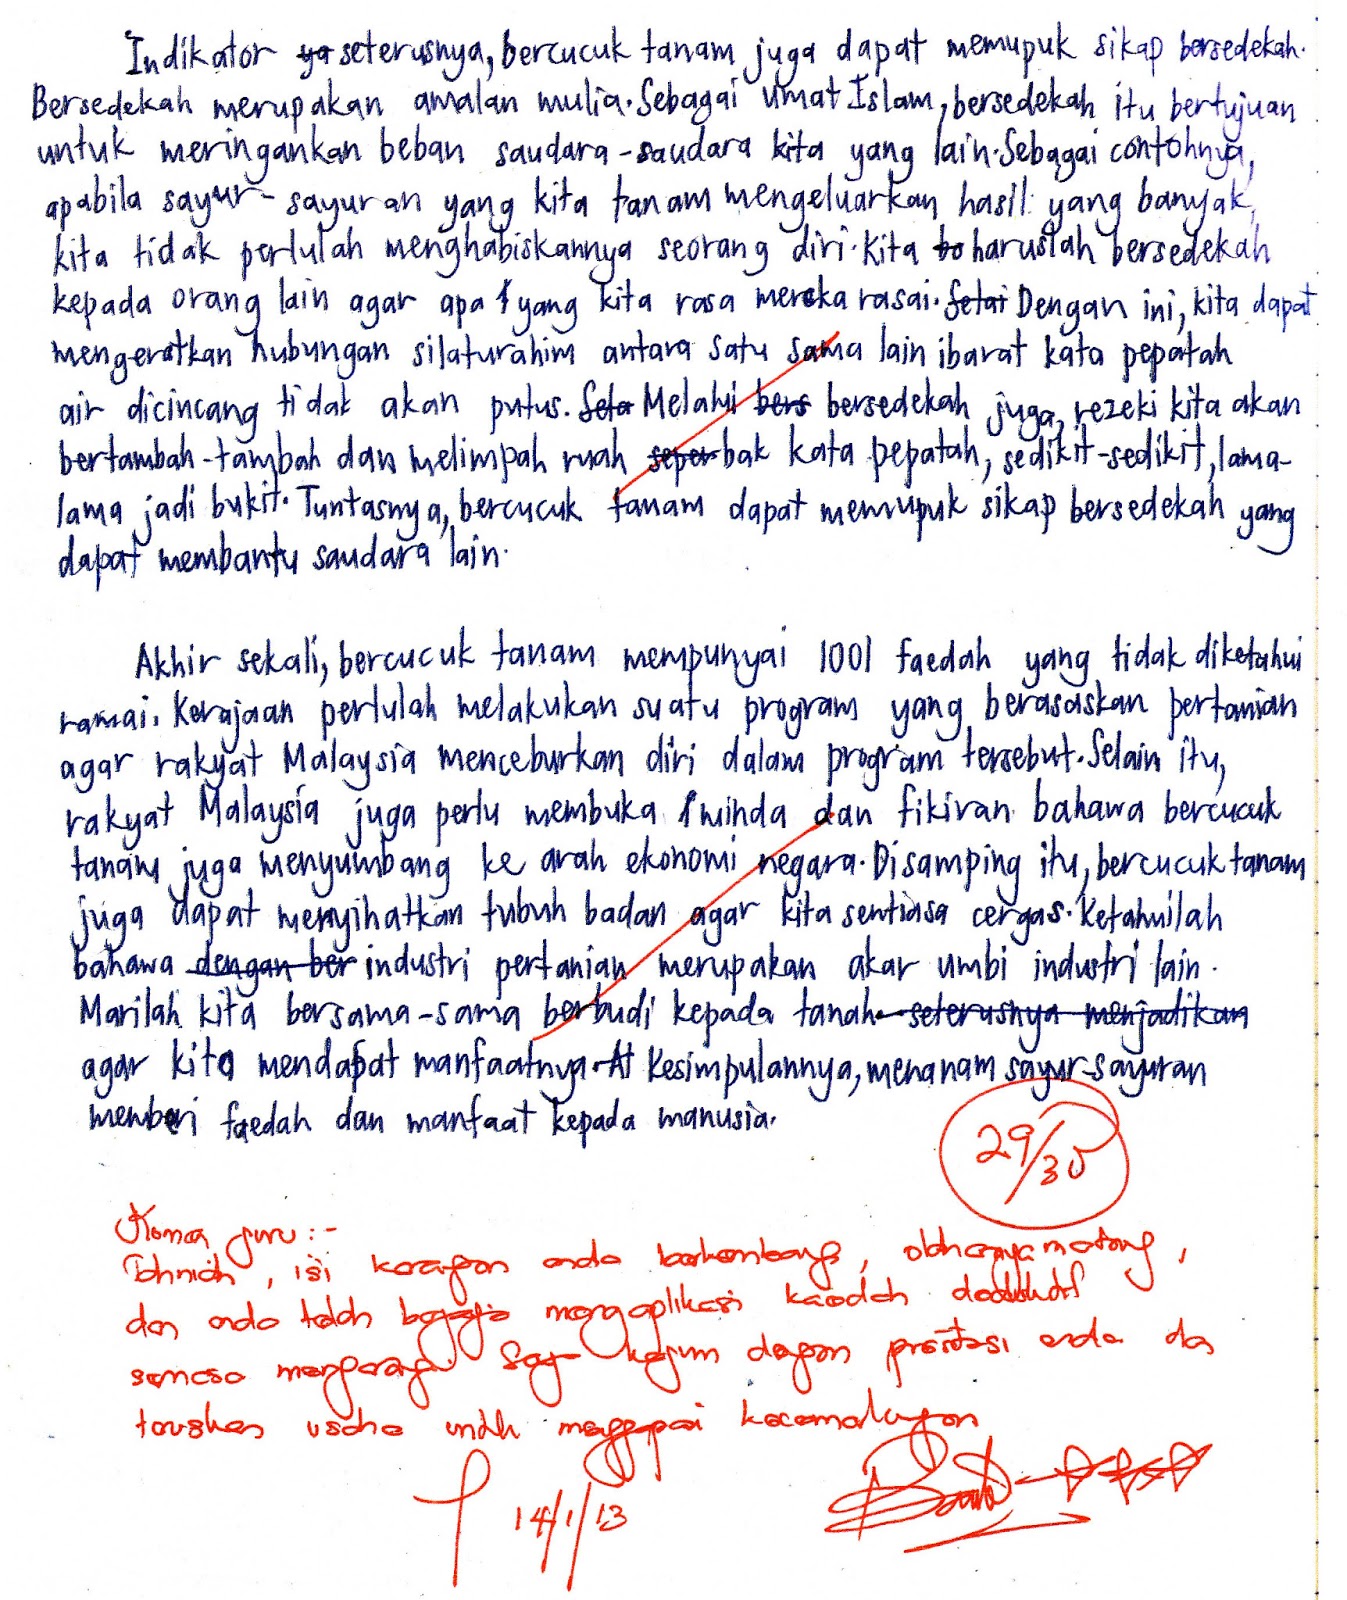 Indikator ya seterusnya, bercucuk tanam juga dapat memupuk sikap bersedekah.
Bersedekah merupakan amalan mulia. Sebagai umat Islam, bersedekah itu bertujuan
untuk meringankan beban saudara-saudara kita yang lain. Sebagai contohnya,
apabila sayur-sayuran yang kita tanam mengeluarkan hasil yang banyak,
kita tidak perlulah menghabiskannya seorang diri. Kita haruslah bersedekah
kepada orang lain agar apa yang kita rasa mereka rasai. Setai Dengan ini, kita dapat
mengeratkan hubungan silaturahim antara satu sama lain ibarat kata pepatah
air dicincang tidak akan putus. Seta Melalui bers bersedekah juga, rezeki kita akan
bertambah-tambah dan melimpah ruah seper bak kata pepatah, sedikit-sedikit, lama-
lama jadi bukit. Tuntasnya, bercucuk tanam dapat memupuk sikap bersedekah yang
dapat membantu saudara lain.
Akhir sekali, bercucuk tanam mempunyai 1001 faedah yang tidak diketahui
ramai. Kerajaan perlulah melakukan suatu program yang berasaskan pertanian
agar rakyat Malaysia menceburkan diri dalam program tersebut. Selain itu,
rakyat Malaysia juga perlu membuka minda dan fikiran bahawa bercucuk
tanam juga menyumbang ke arah ekonomi negara. Disamping itu, bercucuk tanam
juga dapat menyihatkan tubuh badan agar kita sentiasa cergas. Ketahuilah
bahawa dengan ber industri pertanian merupakan akar umbi industri lain.
Marilah kita bersama-sama berbudi kepada tanah seterusnya menjadikan
agar kita mendapat manfaatnya. At Kesimpulannya, menanam sayur-sayuran
memberi faedah dan manfaat kepada manusia.
29/30
Komen guru :-
Tahniah, isi karangan anda berkembang, olahannya matang,
dan anda telah mengaplikasi kaedah deduktif
semasa mengarang. Saya kagum dengan prestasi anda dan
teruskan usaha untuk menggapai kecemerlangan
14/1/13